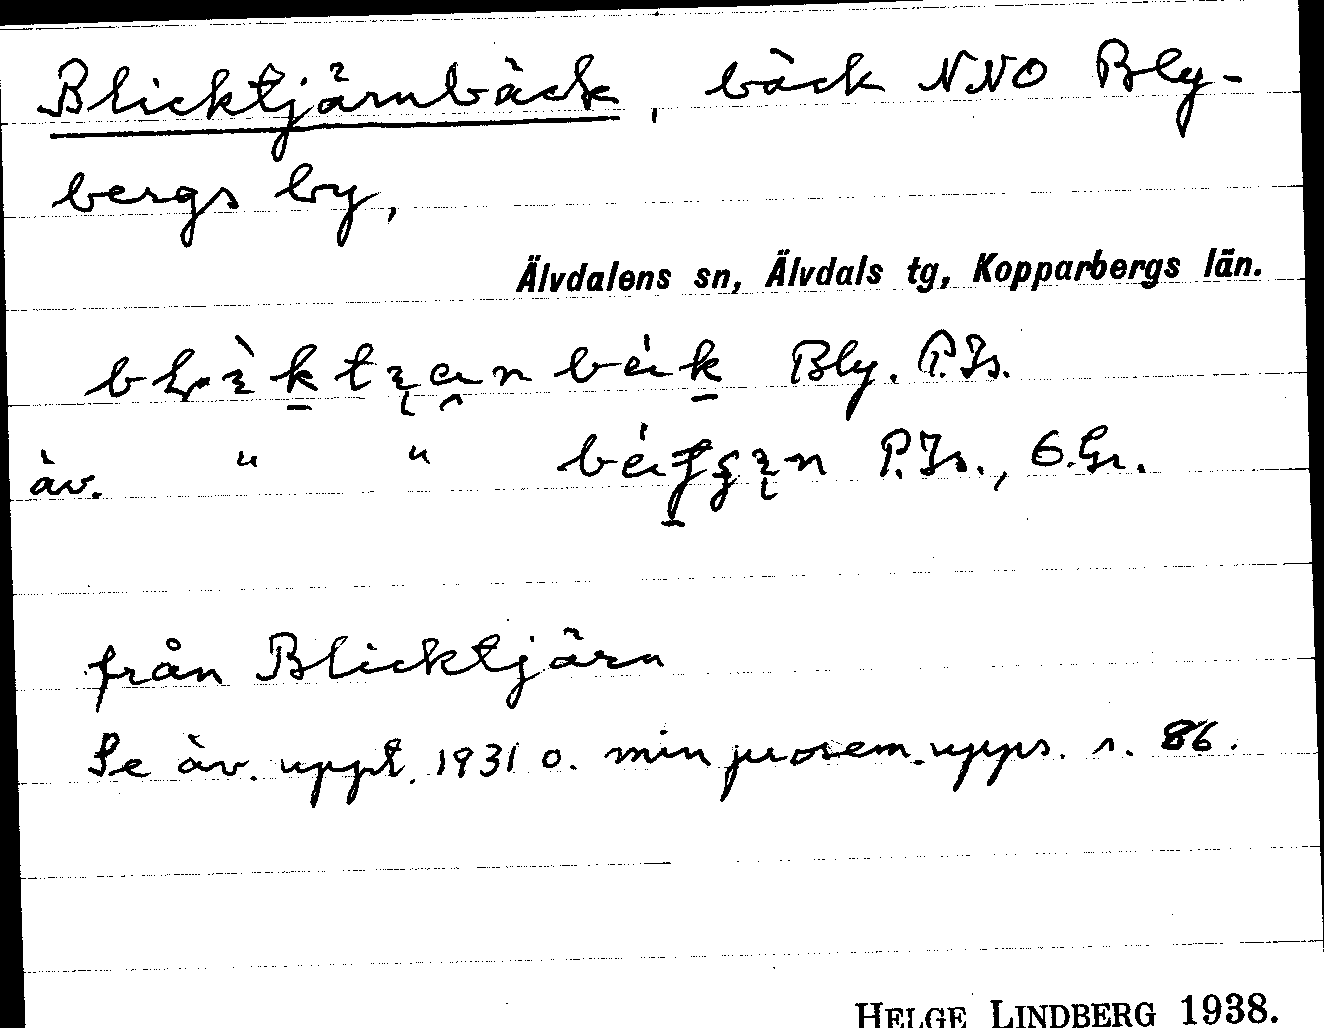 Blicktjärnbäck, bäck NNO Bly-
bergs by,
Älvdalens sn, Älvdals tg, Kopparbergs län.
Bly. P.Is.
äv. " " P.Is., G.Gr.
från Blicktjärn
Se äv. uppt. 1931 o. min prosem.upps. s. 86.
HELGE LINDBERG 1938.